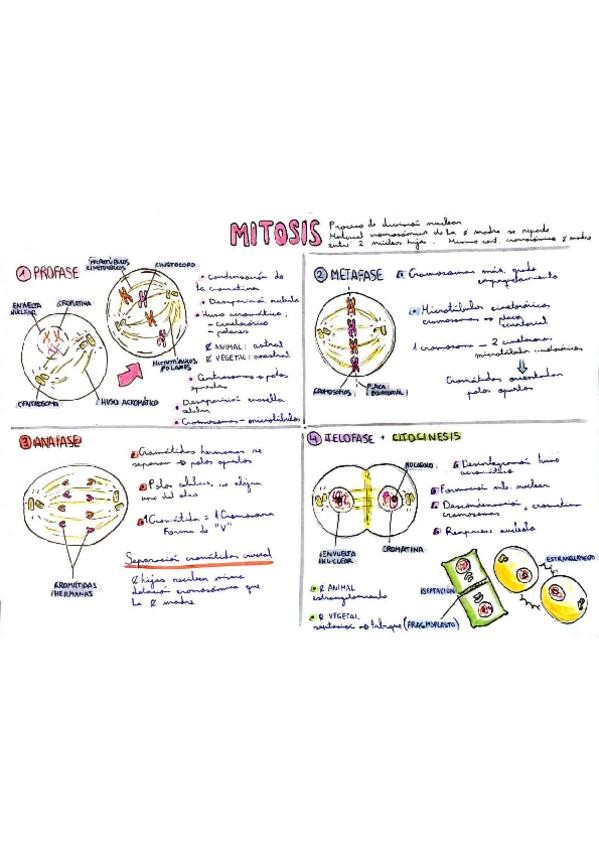 MITOSIS
Proceso de división nuclear
Material cromosómico de la ¢ madre se reparte
entre 2 núcleos hijos. Misma cant. cromosómica ¢ madre
① PROFASE
MICROTÚBULOS
CINETOCÓRICOS
CINETOCORO
ENVUELTA
NUCLEAR
CROMATINA
CENTROSOMA
HUSO ACROMÁTICO
MICROTÚBULOS
POLARES
Condensación de
la cromatina
Desaparición nucleolo
Huso acromático:
- cinetocórico
- polares
¢ ANIMAL: astral
¢ VEGETAL: anastral
Centrosomas → polos
opuestos
Desaparición envuelta
Cromosomas - microtúbulos
② METAFASE
Cromosomas máx. grado
empaquetamiento
Microtúbulos cinetocóricos
cromosomas → placa
ecuatorial
1 cromosoma - 2 cinetocoros
microtúbulos cinetocóricos
Cromátidas orientadas
polos opuestos
CROMOSOMAS
PLACA
ECUATORIAL
③ ANAFASE
Cromátidas hermanas se
separan → polos opuestos
Polos celulares se alejan
uno del otro
1 Cromátida = 1 Cromosoma
Forma de "V"
Separación cromátidas crucial
¢ hijas reciben misma
dotación cromosómica que
la ¢ madre
CROMÁTIDAS
HERMANAS
④ TELOFASE + CITOCINESIS
NUCLEOLO
Desintegración huso
acromático
Formación mb. nuclear
Descondensación cromatina
cromosomas
Reaparece nucleolo
ENVUELTA
NUCLEAR
CROMATINA
¢ ANIMAL
estrangulamiento
¢ VEGETAL
septación → tabique (FRAGMOPLASTO)
SEPTACIÓN
ESTRANGULAMIENTO